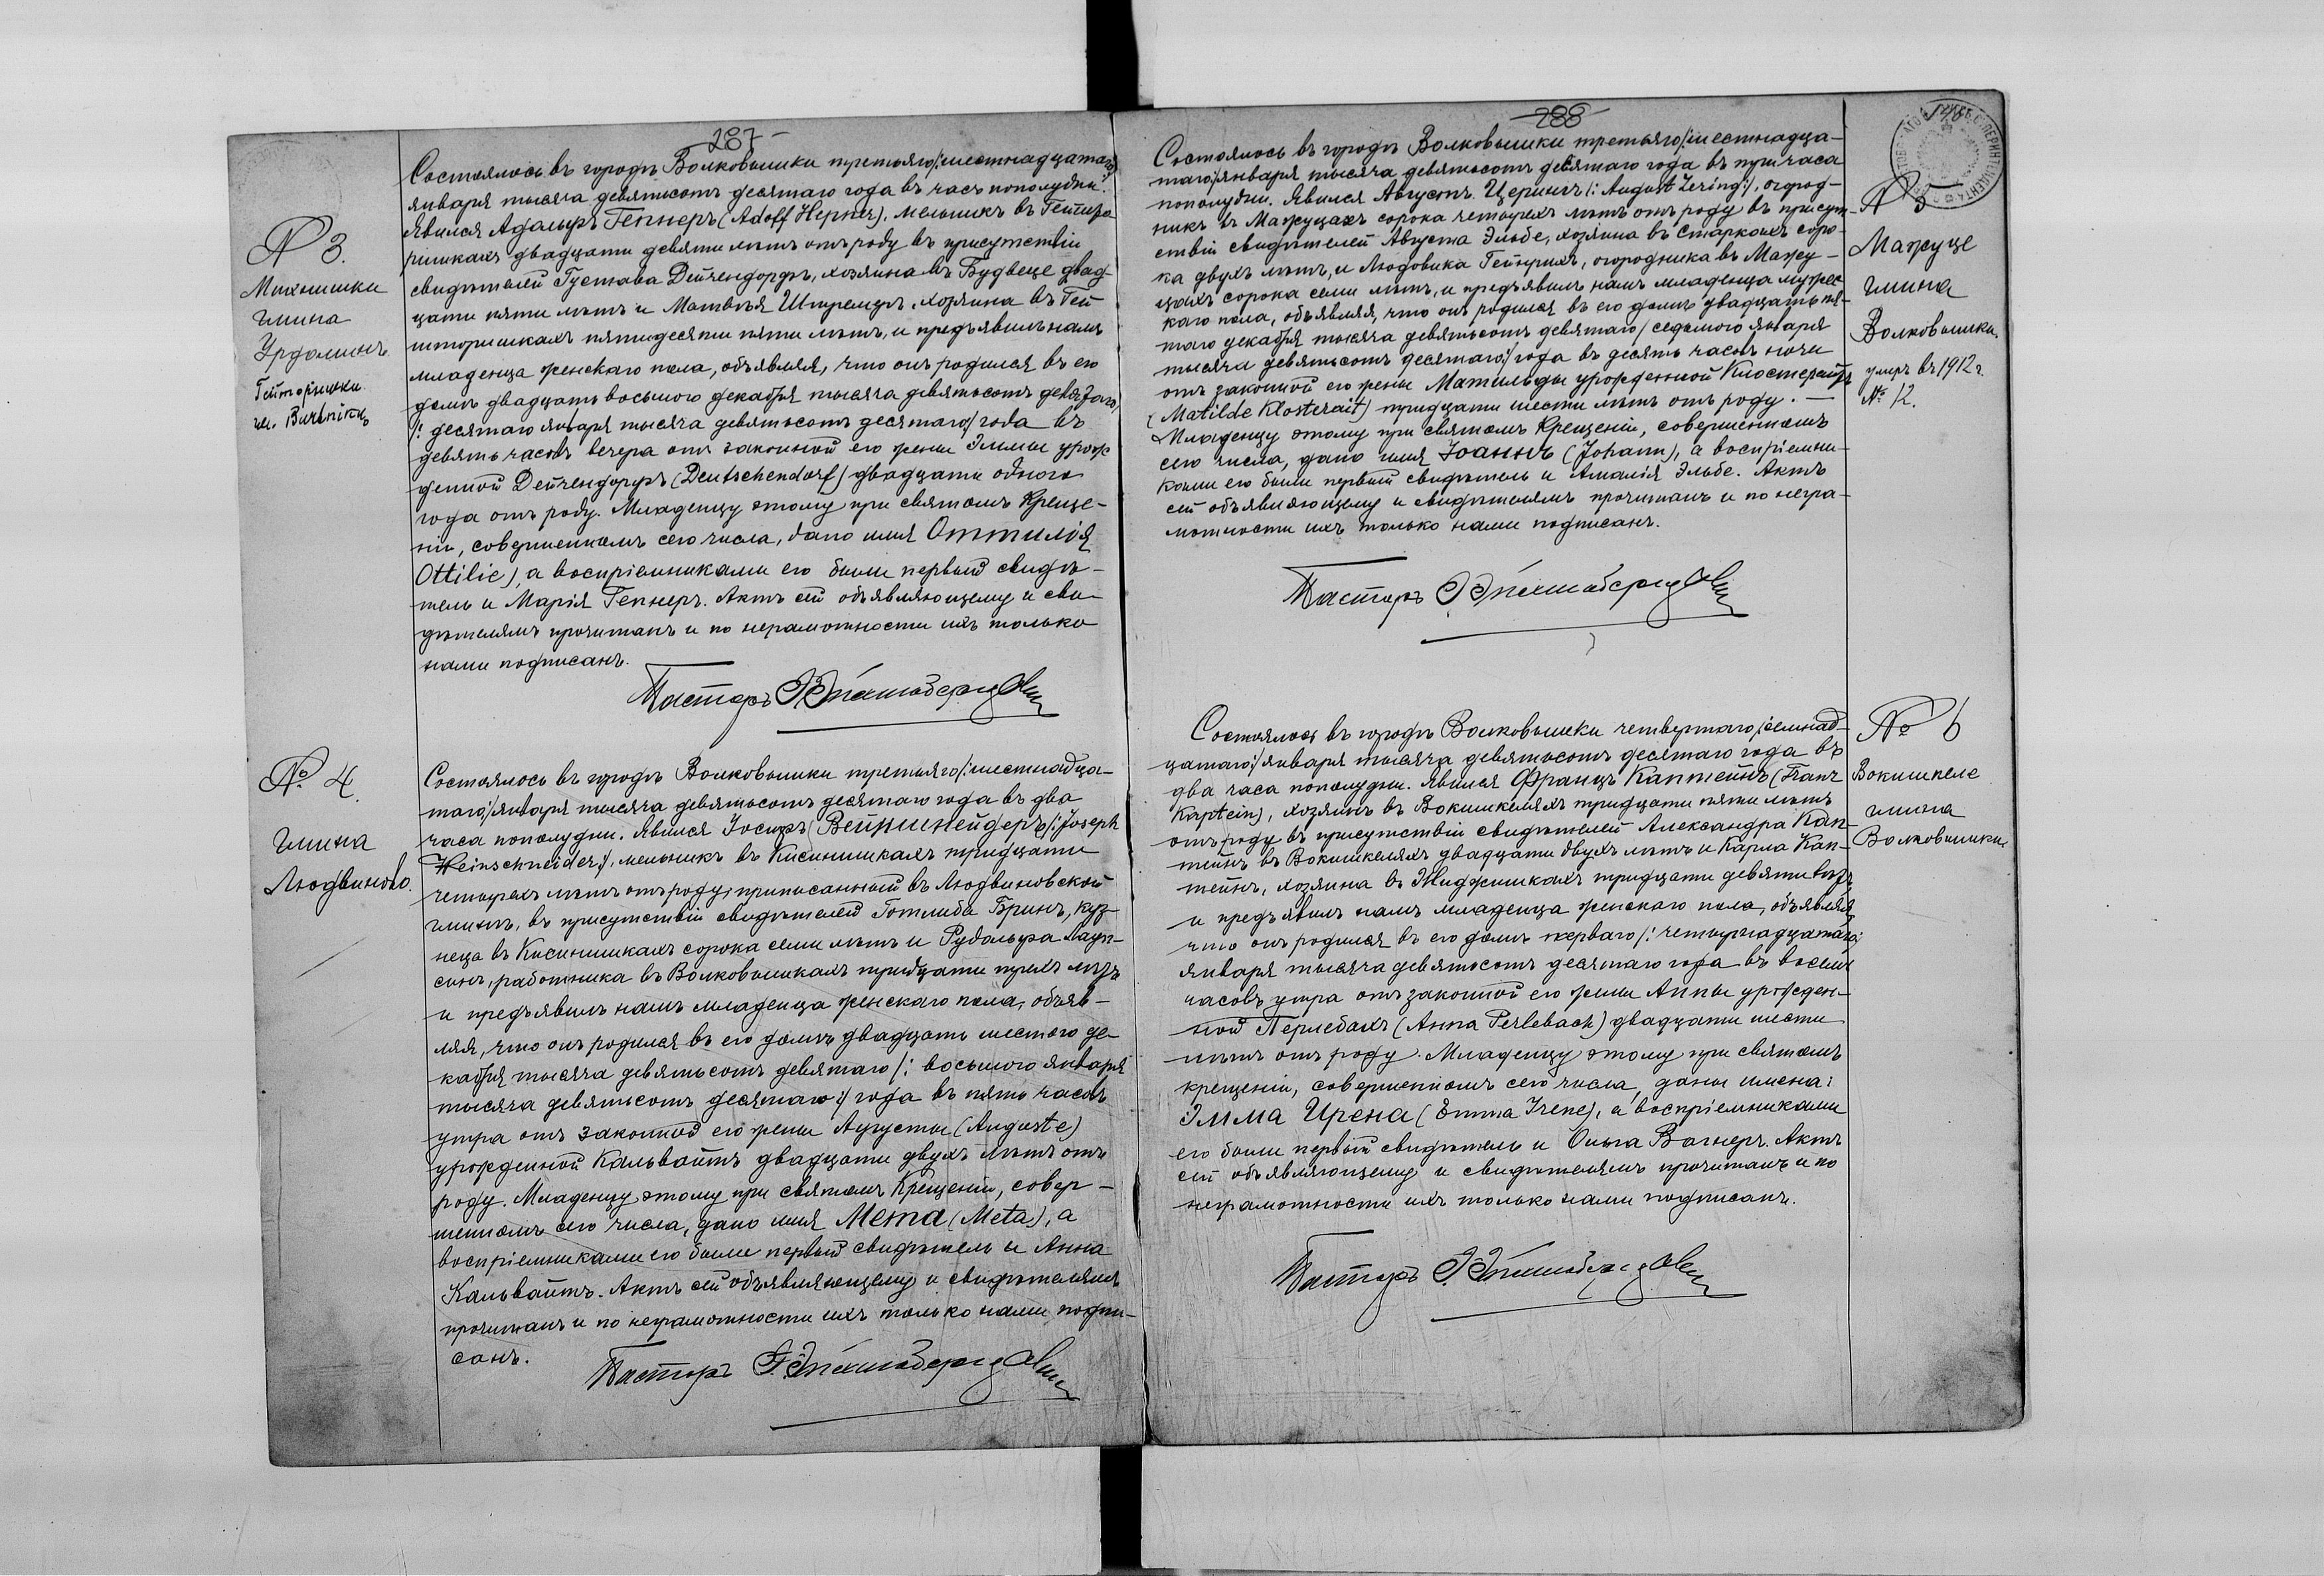 287
№ 3.
Михнишки
гмина
Урдоминъ
Гейторишки
Состоялось въ городѣ Волковышки третьяго/:шестнадцатаго
января тысяча девятьсотъ десятаго года въ часъ пополудни.
Явился Адольфъ Гепнеръ (Adolf Hepner), мельникъ въ Гейтиро-
ришкахъ двадцати девяти лѣтъ отъ роду въ присутствіи
свидѣтелей Густава Дейчендорфъ, хозяина въ Будвеце двад-
цати пяти лѣтъ и Матвѣя Штремцеръ, хозяина въ Гей
торишкахъ пятидесяти пяти лѣтъ, и предъявилъ намъ
младенца женскаго пола, объявляя, что онъ родился въ его
домѣ двадцать восьмого декабря тысяча девятьсотъ девятаго
/: десятаго января тысяча девятьсотъ десятаго/ года въ
девять часовъ вечера отъ законной его жены Эммы урож
денной Дейчендорфъ (Deutschendorf) двадцати одного
года отъ роду. Младенцу этому при святомъ Креще-
ніи, совершенномъ сего числа, дано имя Оттилія
Ottilie), а воспріемниками его были первый свидѣ-
тель и Марія Гепнеръ. Актъ сей объявляющему и сви-
дѣтелямъ прочитанъ и по неграмотности ихъ только
нами подписанъ.
Пасторъ
№ 4.
гмина
Людвиново.
Состоялось въ городѣ Волковышки третьяго/:шестнадца-
таго:/января тысяча девятьсотъ десятаго года въ два
часа пополудни. Явился Іосифъ (Вейншнейдеръ/:Joseph
Weinschneider:/, мельникъ въ Кисинишкахъ тридцати
четырехъ лѣтъ отъ роду, приписанный въ Людвиновской
гминѣ, въ присутствіи свидѣтелей Готлиба Бринъ, куз-
неца въ Кисинишкахъ сорока семи лѣтъ и Рудольфа Лауп-
синъ, работника въ Волковышкахъ тридцати трехъ лѣтъ
и предъявилъ намъ младенца женскаго пола, объяв-
ляя, что онъ родился въ его домѣ двадцать шестого де-
кабря тысяча девятьсотъ девятаго /: восьмого января
тысяча девятьсотъ десятаго:/ года въ пять часовъ
утра отъ законной его жены Августы (Auguste)
урожденной Кальвайтъ двадцати двухъ лѣтъ отъ
роду. Младенцу этому при святомъ Крещеніи, совер-
шенномъ сего числа, дано имя Мета (Meta), а
воспріемниками его были первый свидѣтель и Анна
Кальвайтъ. Актъ сей объявляющему и свидѣтелямъ
прочитанъ и по неграмотности ихъ только нами подпи-
санъ.
Пасторъ
288
Состоялось въ городѣ Волковышки третьяго/:шестнадца-
таго:/января тысяча девятьсотъ десятаго года въ три часа
пополудни. Явился Августъ Церингъ /: August Zering:/, огород-
никъ въ Мажуцахъ сорока четырехъ лѣтъ отъ роду въ присут-
ствіи свидѣтелей Августа Эльбе, хозяина въ Старкахъ соро-
ка двухъ лѣтъ, и Людовика Гейнрихъ, огородника въ Мажу-
цахъ сорока семи лѣтъ, и предъявилъ намъ младенца мужес
каго пола, объявляя, что онъ родился въ его домѣ двадцать пя-
таго декабря тысяча девятьсотъ девятаго/ седьмого января
тысяча девятьсотъ десятаго:/ года въ десять часовъ ночи
отъ законной его жены Матильды урожденной Клостерайтъ
(Matilde Klosterait) тридцати шести лѣтъ отъ роду. —
Младенцу этому при святомъ Крещеніи, совершенномъ
сего числа, дано имя Іоаннъ (Johann), а воспріемни-
ками его были первый свидѣтель и Амалія Эльбе. Актъ
сей объявляющему и свидѣтелямъ прочитанъ и по негра-
мотности ихъ только нами подписанъ.
Пасторъ
№ 5
Мажуце
гмина
Волковышки.
умеръ въ 1912 г.
№ 12.
Состоялось въ городѣ Волковышки четвертаго/:семнад-
цатаго:/ января тысяча девятьсотъ десятаго года въ
два часа пополудни. Явился Францъ Каптейнъ (Franz
Kaptein), хозяинъ въ Вокишкеляхъ тридцати пяти лѣтъ
отъ роду въ присутствіи свидѣтелей Александра Кап-
тейнъ въ Вокишкеляхъ двадцати двухъ лѣтъ и Карла Кап-
тейнъ, хозяина въ Жиджишкахъ тридцати девяти лѣтъ
и предъявилъ намъ младенца женскаго пола, объявляя,
что онъ родился въ его домѣ перваго /: четырнадцатаго:/
января тысяча девятьсотъ десятаго года въ восемь
часовъ утра отъ законной его жены Анны урожден-
ной Перлебахъ (Anna Perlebach) двадцати шести
лѣтъ отъ роду. Младенцу этому при святомъ
крещеніи, совершенномъ сего числа, даны имена:
Эмма Ирена (Emma Irene), а воспріемниками
его были первый свидѣтель и Ольга Вагнеръ. Актъ
сей объявляющему и свидѣтелямъ прочитанъ и по
неграмотности ихъ только нами подписанъ.
Пасторъ
№ 6
Вокишкеле
гмина
Волковышки